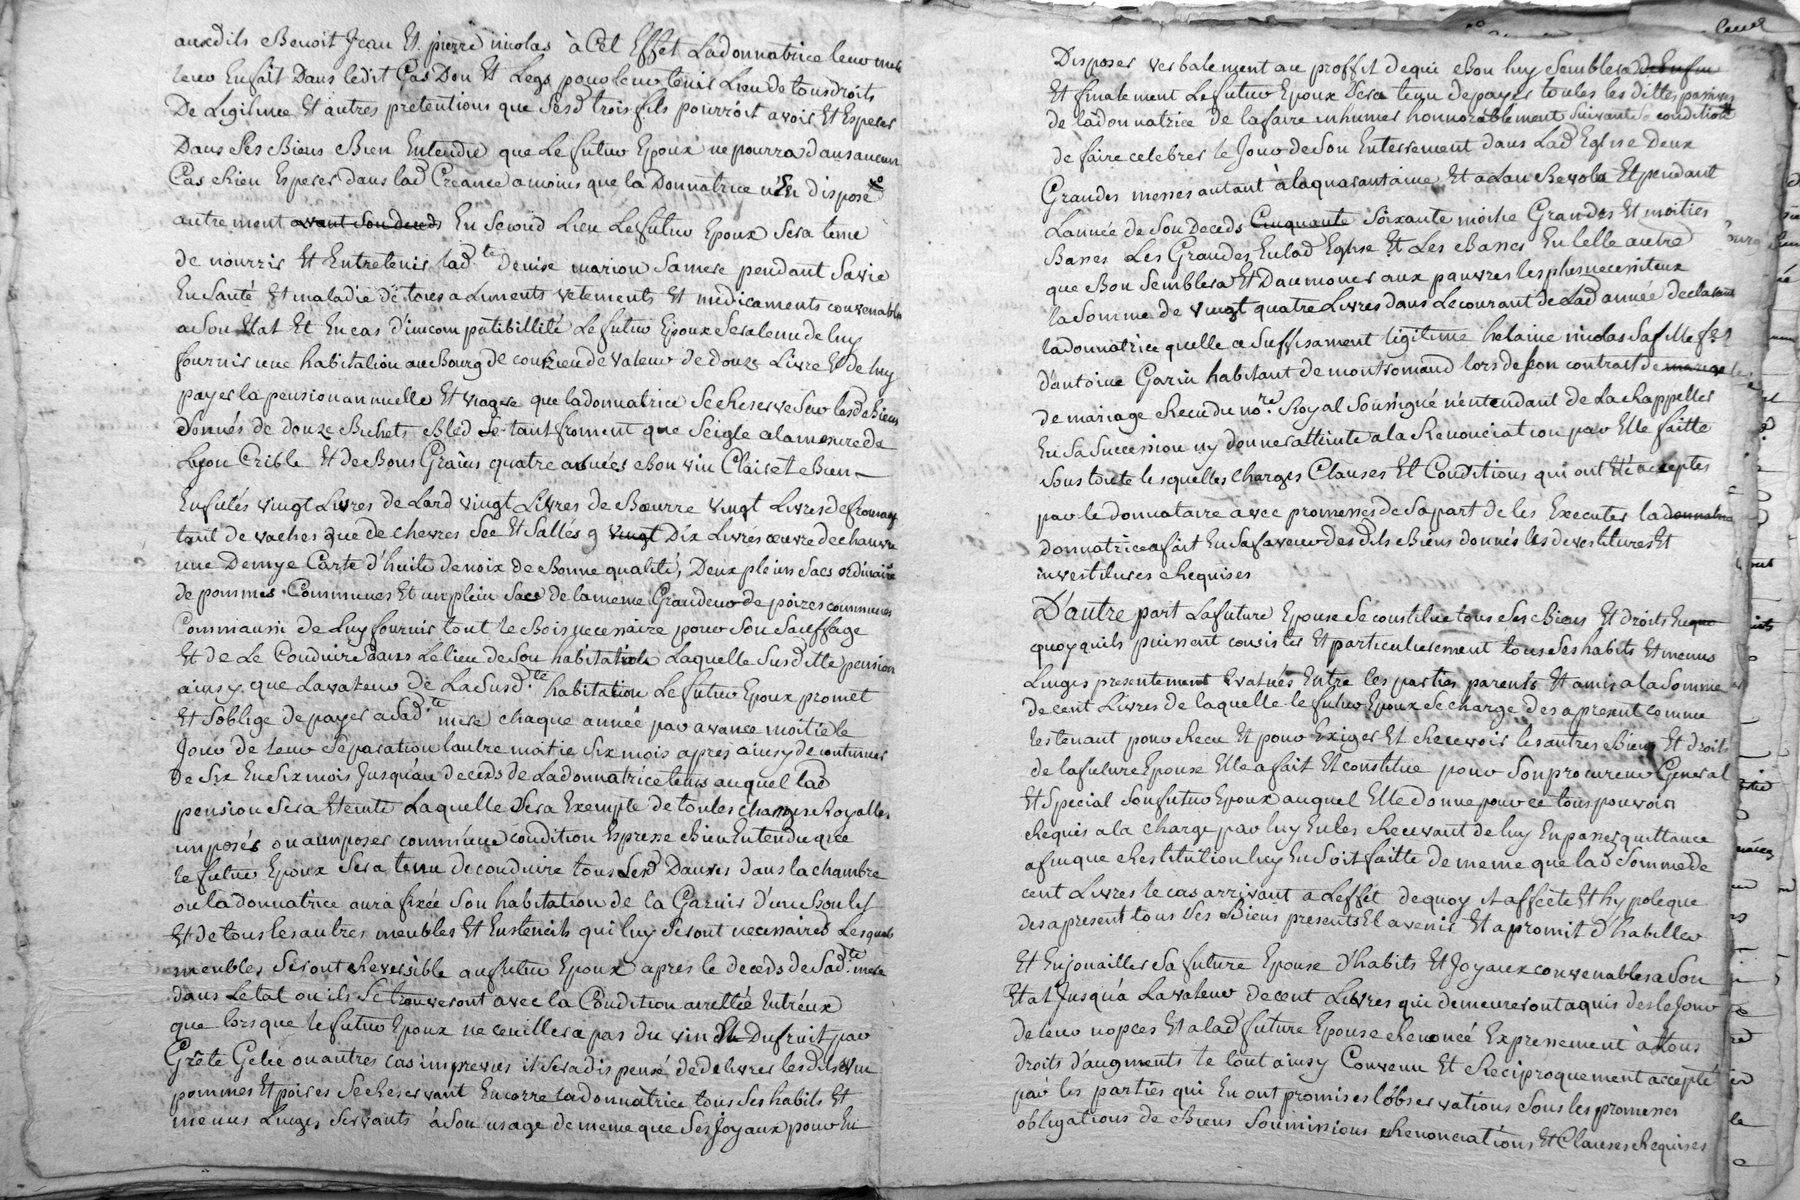 auxdits Benoit Jean Et pierre nicolas à Cet Effet Ladonnatrice leur
leur Enfait Dans ledit Cas Don Et Legs pour leur tenir Lieu de tous droits
De Ligitime Et autres pretentions que sesd trois fils pourroit avoir Et Esperer
Dans ses Biens Bien Entendu que Le futur Epoux ne pourra dans aucun
Cas Rien Esperer dans lad Creance amoins que la Donnatrice n'En dispose
autrement avant Son deceds En second Lieu Le futur Epoux sera tenu
de nourrir Et Entretenir lad.te denise marion Samere pendant Savie
En Santé Et maladie de tous aluments vetements Et medicaments convenables
a Son Etat Et En cas d'incompatibillité Le futur Epoux Sera tenu de luy
fournir une habitation au Bourg de de valeur de douze Livre Et de luy
payer la pension annuelle Et viagere que ladonnatrice Se Reserve Sur lesd Biens
donnés de douze Bichets Bled tant froment que Seigle a la mesure de
Lyon Crible Et de Bons Grains quatre anées Bon vin Clair et Bien
Enfutés vingt Livres de Lard vingt Livres de Beurre vingt Livres de fromage
tant de vaches que de chevres Sec Et Sallés vingt Dix Livres œuvre de chanvre
une Demye Carte d'huile de noix de Bonne qualité, Deux pleins Sacs ordinaire
de pommes Communes Et un plein Sacs de la meme Grandeur de poires communes
Comm'aussi de Luy fournir tout le Bois necessaire pour Son Sauffage
Et de Le Conduire dans Le lieu de Son habitation Laquelle Susditte pension
ainsy que La valeur de La Susd.te habitation Le futur Epoux promet
Et S'oblige de payer a Sad.te mere chaque année par avance moitié le
Jour de leur Separation l'autre moitie Six mois apres ainsy de continuer
De Six En Six mois Jusqu'au deceds de La donnatrice tems auquel lad
pension Sera Eteinte Laquelle Sera Exempte de toutes charges Royalles
imposés ou a imposer comm'une condition Expresse Bien Entendu que
le futur Epoux Sera tenu de conduire tous Lesd Danrés dans la chambre
ou la donnatrice aura fixée Son habitation de la Garnir d'un Bon lit
Et de tous les autres meubles Et Enstencils qui luy Seront necessaires Lesquels
meubles Seront Reversible au futur Epoux apres le deceds de Sad.te mere
dans L'etat ou ils Se trouveront avec la Condition arrettée Entr'eux
que lorsque le futur Epoux ne ceuillera pas du vin Et Du fruit par
Grele Gelée ou autres cas imprevus il Sera dispensé de delivrer lesdits vin
pommes Et poires Se Reservant Encorre la donnatrice tous Ses habits Et
menus Linges Servants à Son usage de meme que Ses Joyaux pour En
Disposer verbalement au proffit de qui Bon luy Semblera de Enfin
Et finalement Le futur Epoux Sera tenu de payer toutes les dittes
de la donnatrice de la faire inhumer honnorablement Suivant Sa condition
de faire celebrer le Jour de Son Enterrement dans Lad Eglise Deux
Grandes messes autant à la quarantaine Et a L'an Revolu Et pendant
L'année de Son Deceds Cinquante Soixante moitie Grandes Et moities
Basses Les Grandes En lad Eglise Et Les Basses En telle autre
que Bon Semblera Et D'aumoner aux pauvres les plus necessiteux
la Somme de vingt quatre Livres dans Le courant de Lad année declarant
la donnatrice quelle a Suffisament ligitime helaine nicolas Sa fille f.e
d'antoine Garin habitant de montromand lors de Son contrait de mariage
de mariage Recu du no.re Royal Soussigné n'entendant de La rappeller
En Sa Succession ny donner atteinte a la Renonciation par Elle faitte
Sous toute lesquelles charges Clauses Et Conditions qui ont Eté acceptes
par le donnataire avec promesses de Sa part de les Executer la donnatri
donnatrice a fait En Sa faveur desdits Biens donnés les devestitures Et
investitures Requises
D'autre part La future Epouse Se constitue tous Ses Biens Et droits En que
quoy quils puissent consister Et particulierement tous Ses habits Et menus
Linges presentement Evalués Entre les parties parents Et amis a la Somme
de cent Livres de laquelle le futur Epoux Se charge des apresent comme
les tenant pour Recu Et pour Exiger Et Recevoir les autres Biens Et droits
de la future Epouse Elle a fait Et constitue pour Son procureur General
Et Special Son futur Epoux auquel Elle donne pour ce tous pouvoirs
Requis a la charge par luy En les Recevant de luy En passer quittance
afin que Restitution luy En Soit faitte de meme que lad Somme de
cent Livres le cas arrivant a L'effet de quoy il affecte Et hypoteque
des apresent tous Ses Biens presents Et avenir Et a promit d'habiller
Et Enjouailler Sa future Epouse d'habits Et Joyaux convenables a Son
Etat Jusqu'a La valeur de cent Livres qui demeureront aquis des le Jour
de leur nopces Et a lad future Epouse Renoncé Expressement à tous
droits d'augments le tout ainsy Convenu Et Reciproquement accepté
par les parties qui En ont promises l'observations Sous les promesses
obligations de Biens Soumissions Renonciations Et Clauses Requises